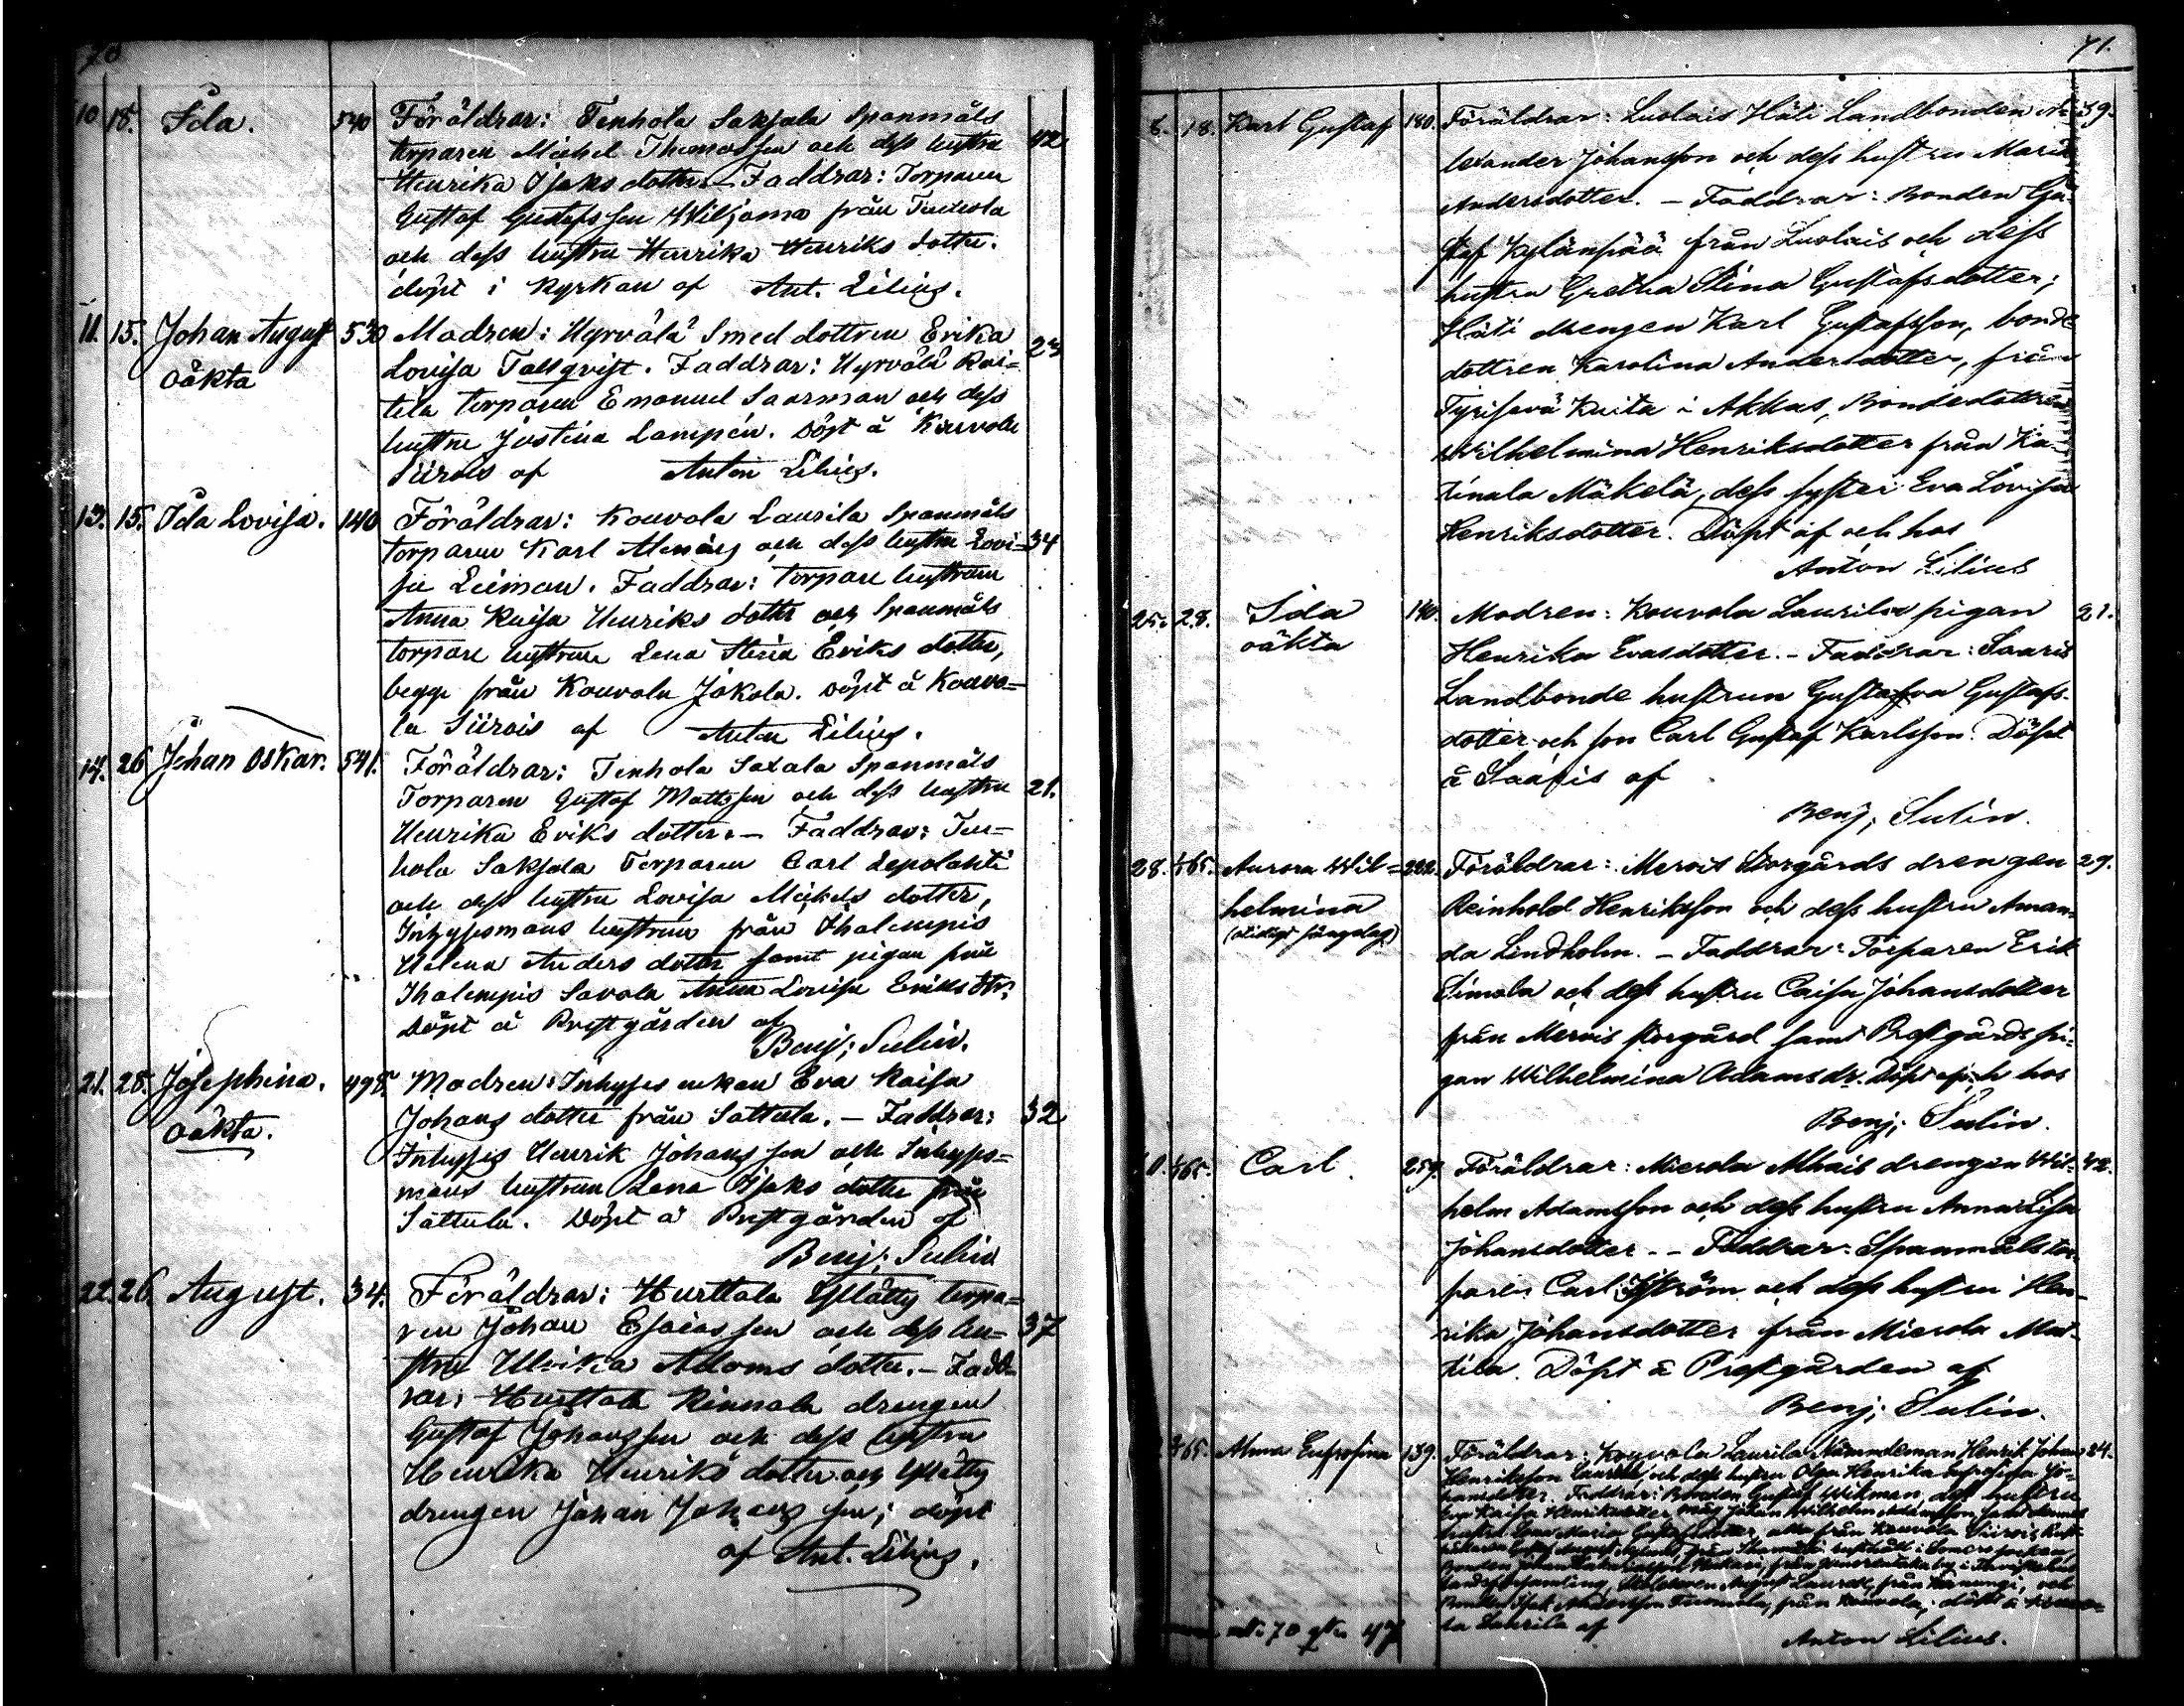 70
10 18. Ida. 540 Föräldrar: Tenhola Saksala Spanmåls
torparen Michel Thomasson och dess hustru 42
Henrika Isaksdotter. — Faddrar: Torparen
Gustaf Gustafsson Wiljama från Tenhola
och dess hustru Henrika Henriks dotter.
döpt i Kyrkan af Ant. Lilius.
11. 15. Johan August 530 Modren: Hyrvälä Smed dottren Erika 23
oäkta Lovisa Tallqvist. Faddrar: Hyrvälä Rai=
tila torparen Emanuel Saarman och dess
hustru Justina Lampén. Döpt å Kouvola
Siirois af Anton Lilius.
13. 15. Ida Lovisa. 140 Föräldrar: Kouvola Laurila Spanmåls
torparen Karl Alenius och dess hustru Lovi= 34
sa Leiman. Faddrar: torpare hustrun
Anna Kaisa Henriks dotter och Spanmåls
torpare hustrun Lena Stina Eriks dotter,
begge från Kouvola Jakola. Döpt å Kouvo=
la Siirois af Anton Lilius.
14. 26 Johan Oskar. 541. Föräldrar: Tenhola Saxala Spanmåls
Torparen Gustaf Mattsson och dess hustru 21.
Henrika Eriks dotter. — Faddrar: Ten=
hola Saksala Torparen Carl Lepolahti
och dess hustru Lovisa Michels dotter,
Inhysesmans hustrun från Ihalempis
Helena Anders dotter samt pigan från
Ihalempis Savola Anna Lovisa Eriks dtr.
Döpt å Prestgården af
Benj; Sulin.
21. 28. Josephina. 498. Modren: Inhyses enkan Eva Kaisa
oäkta. Johans dotter från Sattula. — Faddrar: 32
Inhyses Henrik Johansson och Inhyses=
mans hustrun Lena Isaks dotter från
Sattula. Döpt å Prestgården af
Benj; Sulin
22. 26. August. 34. Föräldrar: Hurttala Yllätty torpa=
ren Johan Esaiasson och dess hu= 37
stru Ulrika Adams dotter. — Fadd=
rar: Hurttala Rinnala drengen
Gustaf Johansson och dess hustru
Henrika Henriks dotter och Yllätty
drengen Johan Johansson; döpt
af Ant. Lilius.
71.
8. 18. Karl Gustaf 180. Föräldrar: Luolais Häti Landbonden A= 39.
lexander Johansson och dess hustru Maria
Andersdotter. — Faddrar: Bonden Gu=
staf Kylänpää från Luolais och dess
hustru Gretha Stina Gustafsdotter;
Häti drengen Karl Gustafsson, bonde
dottren Karolina Andersdotter, från
Kuita i Akkas, Bondedottren
Wilhelmina Henriksdotter från Ka=
tinala Mäkelä, dess syster Eva Lovisa
Henriksdotter. Döpt af och hos
Anton Lilius
25. 28. Ida 140. Modren: Kouvola Laurila pigan 21.
oäkta Henrika Evasdotter. — Faddrar: Saaris
Landbonde hustrun Gustafva Gustafs-
dotter och son Carl Gustaf Karlsson. Döpt
å Saaris af
Benj; Sulin.
28. 65. Aurora Wil= Föräldrar: Mervis Storgårds drengen 29.
helmina Reinhold Henriksson och dess hustru Aman=
da Lindholm. — Faddrar: Torparen Erik
Simola och dess hustru Caisa Johansdotter
från Mervis storgård samt Prestgårds pi=
gan Wilhelmina Adamsdr. Döpt af och hos
Benj; Sulin.
65. Carl. 259. Föräldrar: Mierola Alhais drengen Wil= 42.
helm Adamsson och dess hustru Anna Lisa
Johansdotter. — Faddrar: Spanmåls tor=
paren Carl och dess hustru Hen=
rika Johansdotter från Mierola Mat=
tila. Döpt å Prestgården af
Benj; Sulin.
65. Alma Eufrosina 139. Föräldrar: Kouvola Laurila Nämndeman Henrik Johan 24.
Henriksson Laurell och dess hustru Olga Henrika Eufrosina Jo=
hansdotter. Faddrar: Bonden Gustaf Wikman, dess hustru
Kaisa Henriksdotter, Johan Wilhelm Adamsson
hustru Maria Gustafsdotter, alla från Kouvola Siirois
Gustaf August i Somero socken,
Bonden Johan
församling, August Laurell, från och
Bonden Isak Andersson från Kouvola, döpt å Kouvo=
la Laurila af
Anton Lilius.
70 47